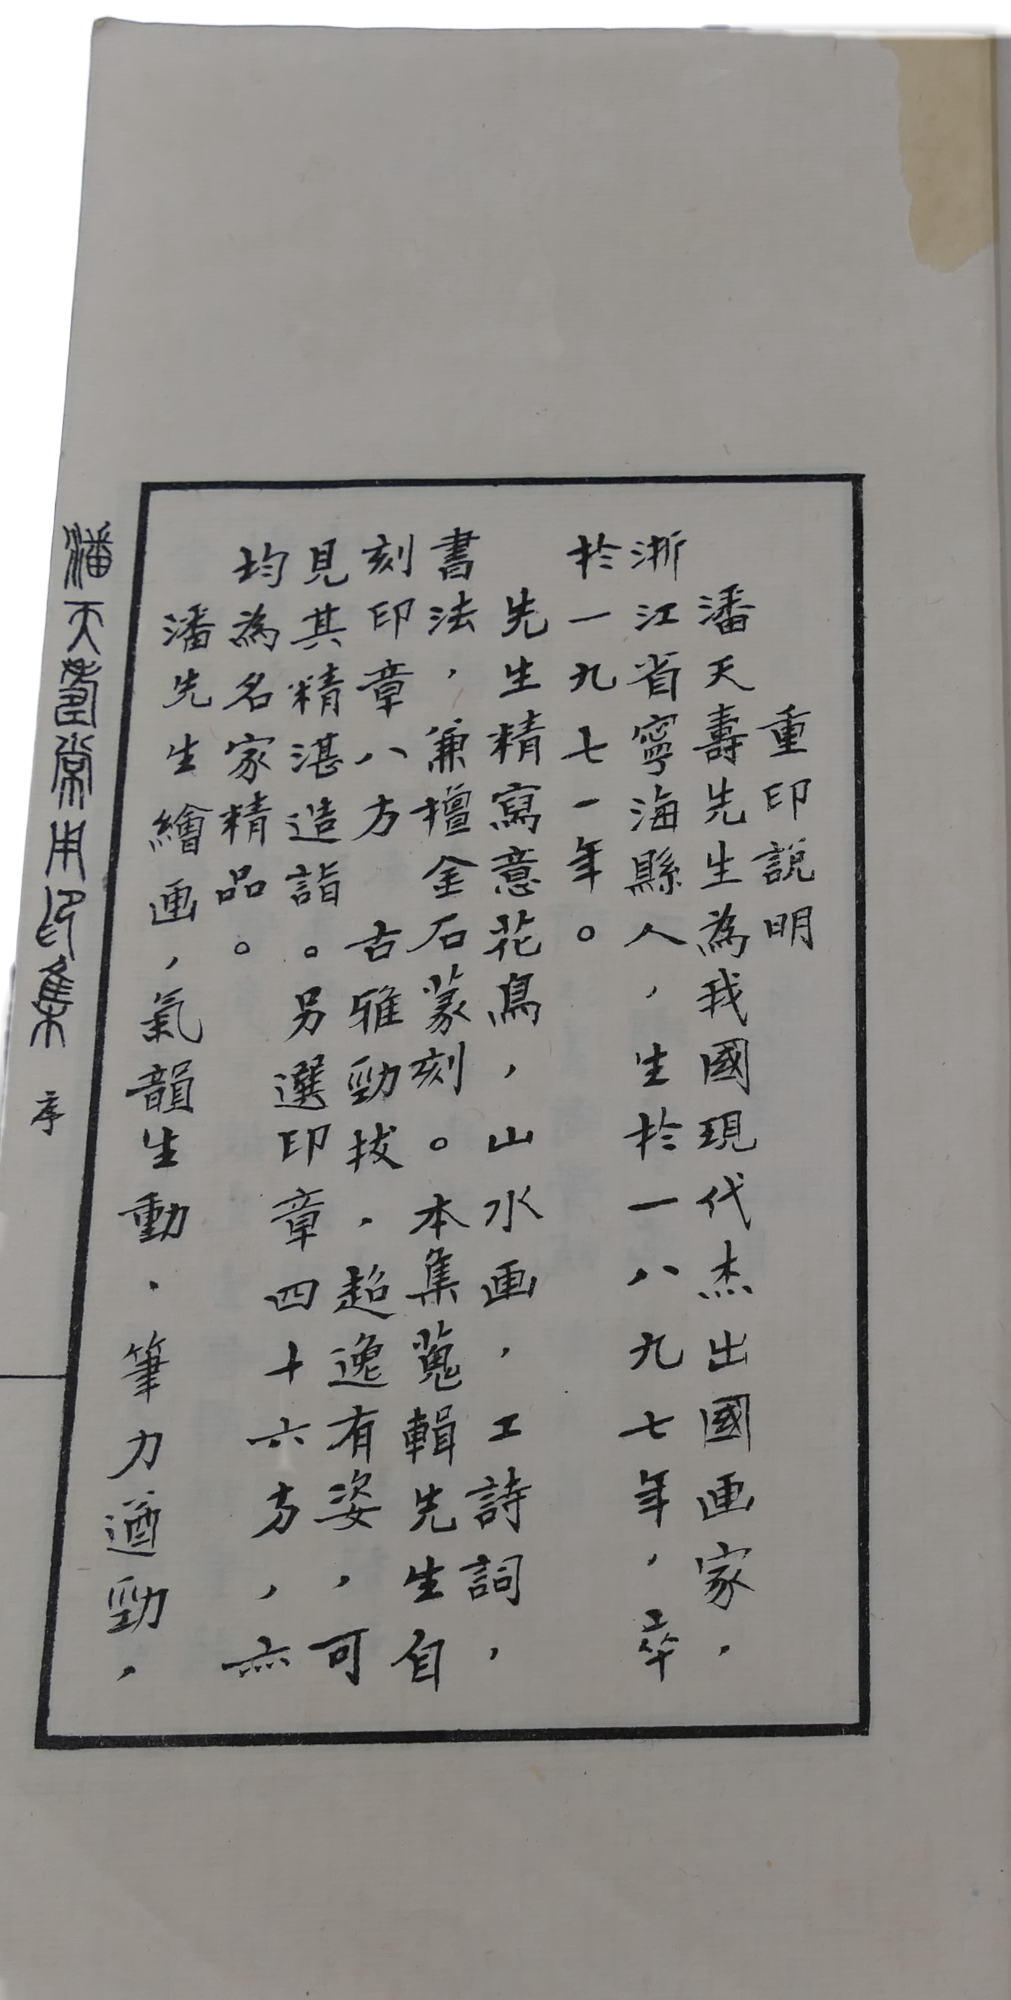 重印説明
潘天壽先生為我國現代杰出國画家，
浙江省寧海縣人，生扵一八九七年，卒
扵一九七一年。
先生精寫意花鳥，山水画，工詩詞，
書法，兼擅金石篆刻。本集蒐輯先生自
刻印章八方 古雅勁拔，超逸有姿，可
見其精湛造詣。另選印章四十六方，亦
均為名家精品。
潘先生繪画，氣韻生動，筆力遒勁，
潘天壽常用印集 序